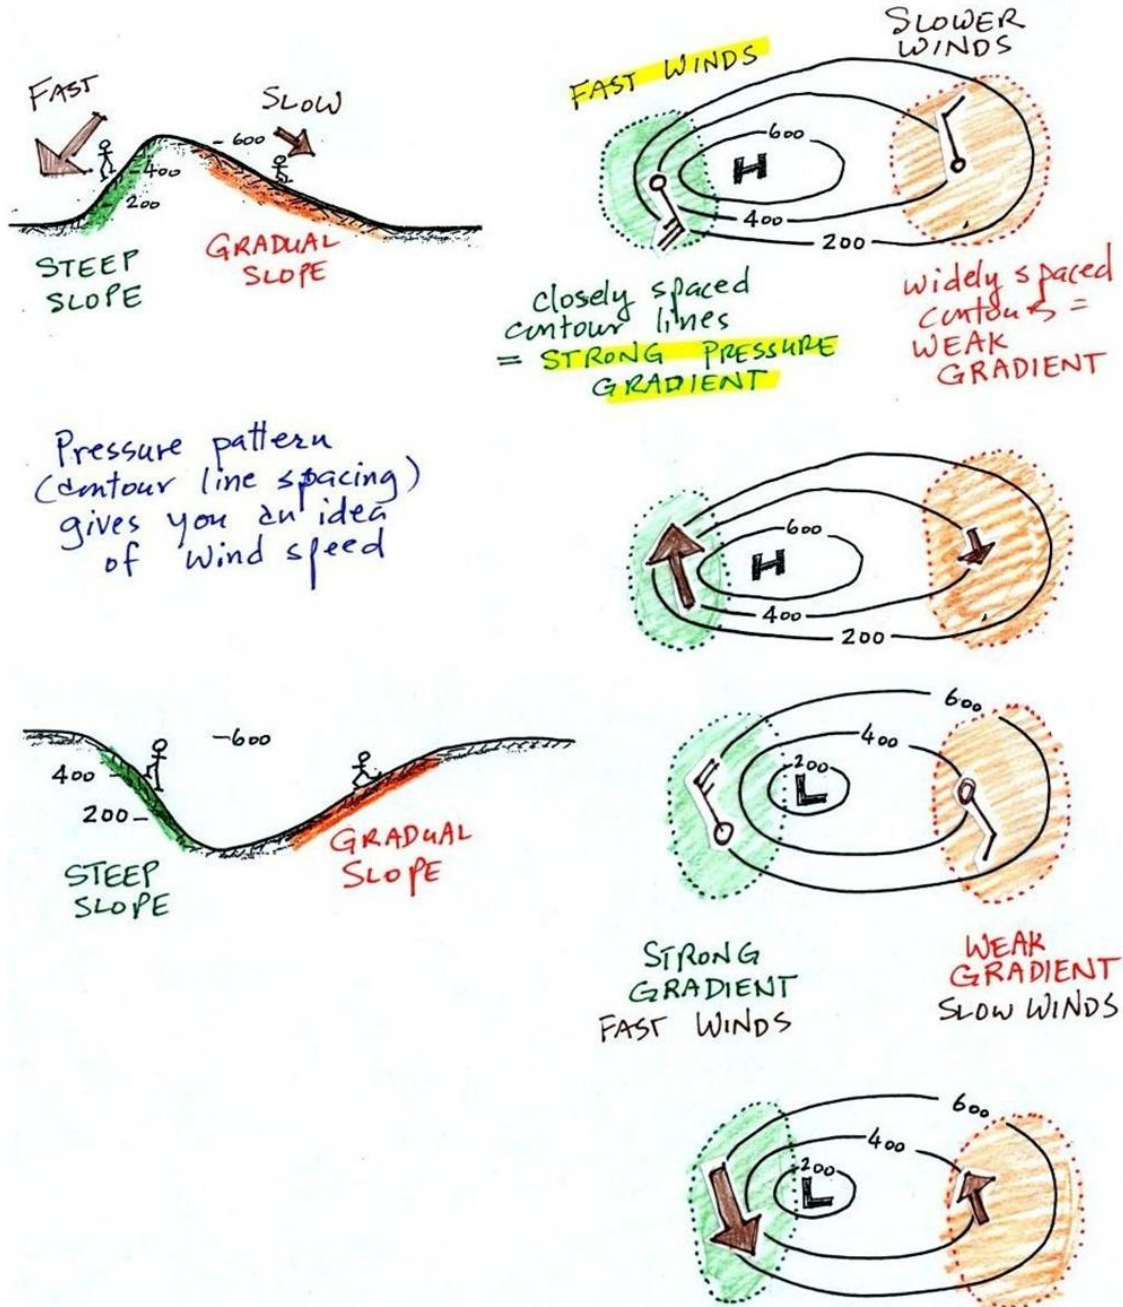 FAST
SLOW
- 600
- 400
- 200
STEEP
SLOPE
GRADUAL
SLOPE
FAST WINDS
SLOWER
WINDS
600
H
400
200
closely spaced
contour lines
= STRONG PRESSURE
GRADIENT
widely spaced
contours =
WEAK
GRADIENT
Pressure pattern
(contour line spacing)
gives you an idea
of wind speed
600
H
400
200
-600
400
200-
STEEP
SLOPE
GRADUAL
SLOPE
600
400
200
L
STRONG
GRADIENT
FAST WINDS
WEAK
GRADIENT
SLOW WINDS
600
400
200
L